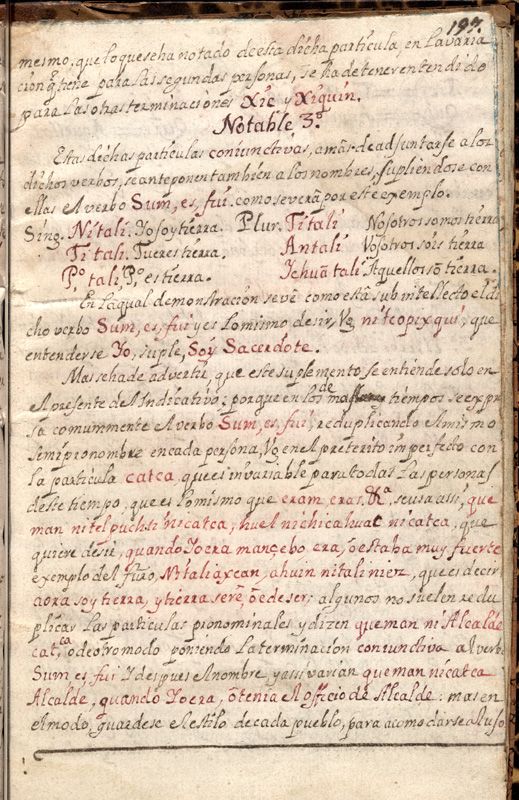 197.
mesmo. que lo que se ha notado de esta dicha particula, en la varia
cion q̃ tiene para las segundas personas, se ha de tener entendido
para las otras terminaciones Xic y Xiquin.
Notable 3º.
Estas dichas particulas coniunctivas, amas de adjuntarse a los
dichos verbos, se anteponen tambien a los nombres, supliendose con
ellas el verbo Sum, es, fui. como se verà por este exemplo.
Sing. Nitali. Yo soy tierra. Plur. Titali Nosotros somos tierra
Titali. Tu eres tierra. Antali Vosotros sois tierra
Pº tali, Pº es tierra. Ychuã tali Aquellos sõ tierra.
En la qual demonstracion se vê como està subintellecto el di
cho verbo Sum, es, fui y es lo mismo desir, Vg nitcopixqui, que
entenderse Yo, suple, Soy Sacerdote.
Mas se ha de advertir, que este suplemento, se entiende solo en
el presente de Indicativo; porque en los de mas tiempos se expre
sa comummente el verbo Sum, es, fui, reduplicando el mismo
semipronombre en cada persona, Vg en el preterito imperfecto con
la particula catca, que es invariable para todas las personas
deste tiempo, que es lo mismo que eram, eras, &ª. se usa assi, que
man nitelpuchtli nicatca, huel nichicahuac nicatca, que
quiere desir, quando Yo era mançebo era, ò estaba muy fuerte
exemplo del furo, Nitali axcan, ahuin nitali niez, que es decir
aora soy tierra, y tierra serè, ò e de ser; algunos no suelen redu
plicar las particulas pronominales y dizen queman ni Alcalde
catca, ò de otro modo poniendo la terminacion coniunctiva al verbo
Sum es fui y despues el nombre, y assi varian queman nicatca
Alcalde, quando Yo era, ò tenia el officio de Alcalde: mas en
el modo, guardese el estilo de cada pueblo, para acomodarse al uso